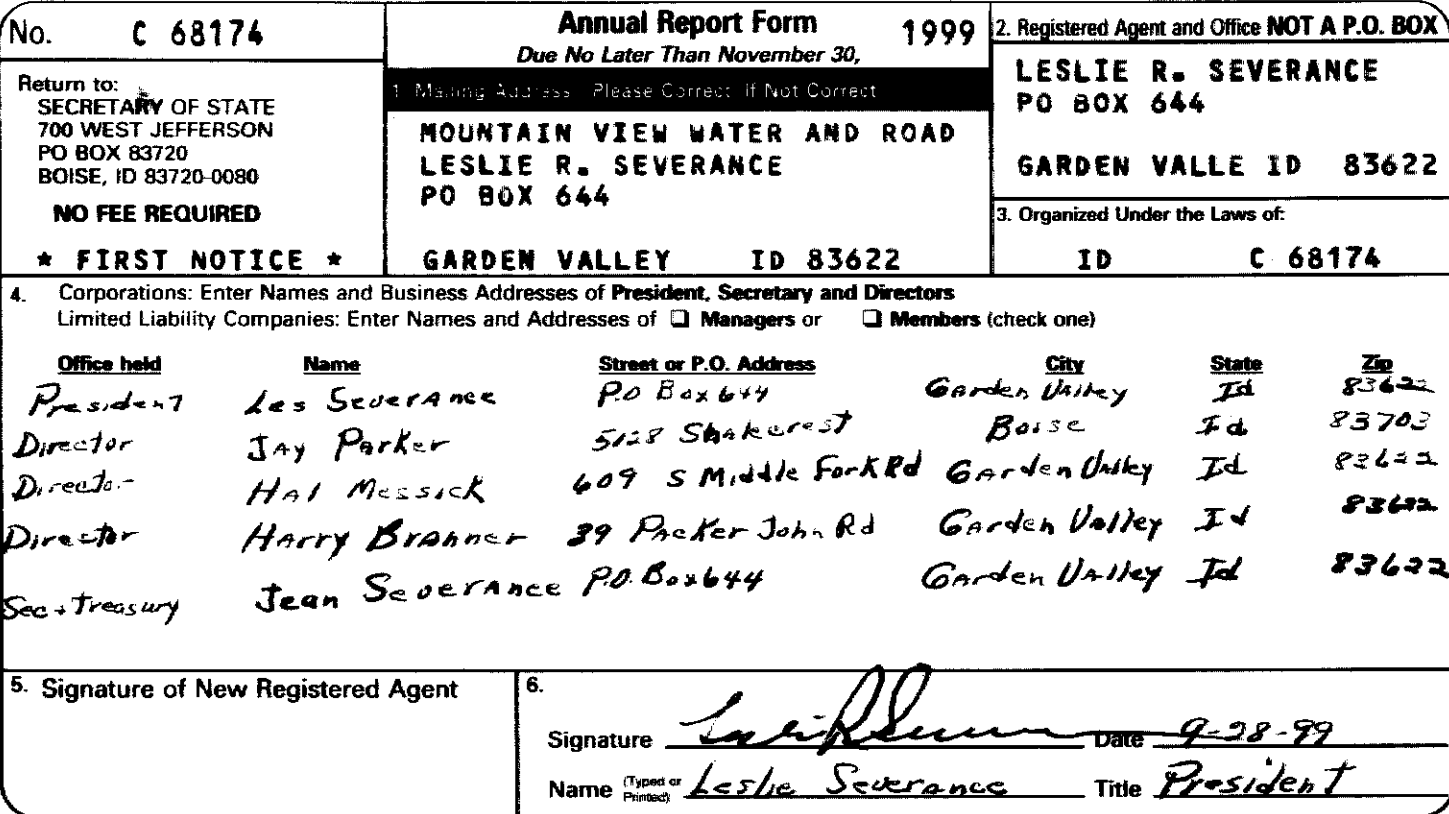 No. C 68174
Annual Report Form 1999
Due No Later Than November 30,
2. Registered Agent and Office NOT A P.O. BOX
Return to:
SECRETARY OF STATE
700 WEST JEFFERSON
PO BOX 83720
BOISE, ID 83720-0080
NO FEE REQUIRED
* FIRST NOTICE *
1. Mailing Address Please Correct If Not Correct
MOUNTAIN VIEW WATER AND ROAD
LESLIE R. SEVERANCE
PO BOX 644
GARDEN VALLEY ID 83622
LESLIE R. SEVERANCE
PO BOX 644
GARDEN VALLE ID 83622
3. Organized Under the Laws of:
ID C 68174
4. Corporations: Enter Names and Business Addresses of President, Secretary and Directors
Limited Liability Companies: Enter Names and Addresses of ❑ Managers or ❑ Members (check one)
Office held Name Street or P.O. Address City State Zip
President Les Severance P.O Box 644 Garden Valley Id 83622
Director Jay Parker 5128 Shakerest Boise Id 83703
Director Hal Messick 609 S Middle Fork Rd Garden Valley Id 83622
Director Harry Branner 39 Packer John Rd Garden Valley Id 83622
Sec + Treasury Jean Severance P.O. Box 644 Garden Valley Id 83622
5. Signature of New Registered Agent
6.
Signature Leslie R Severance Date 9-28-99
Name (Typed or Printed) Leslie Severance Title President